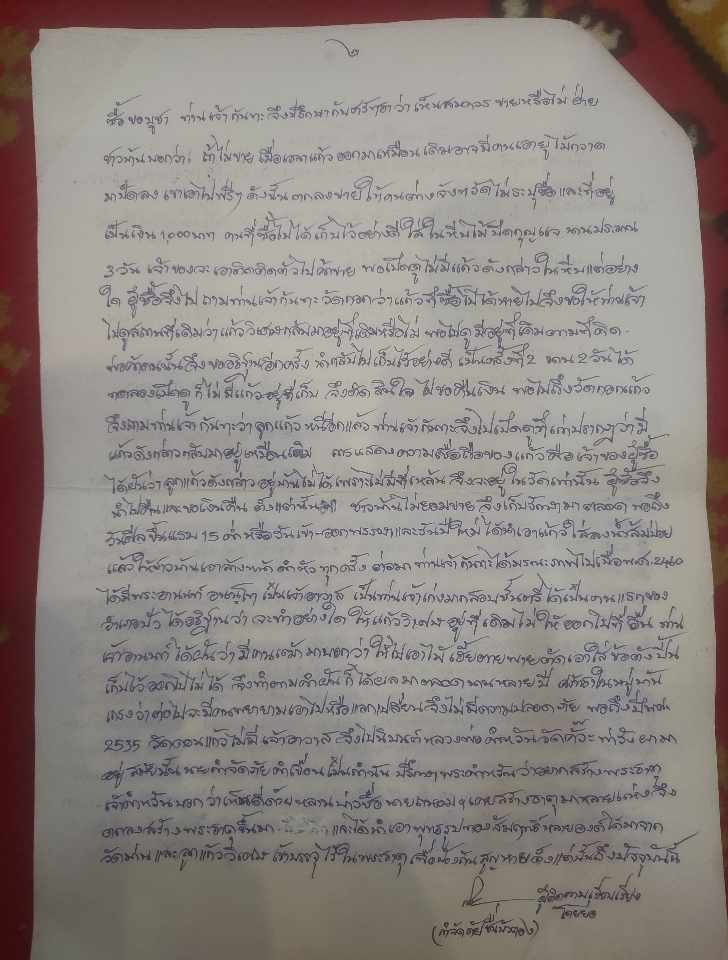 ๒
ซื้อขอบูชา ท่านเจ้ากันทะจึงปรึกษากับศรัทธาว่าเห็นสมควรขายหรือไม่ ฝ่าย
ชาวบ้านบอกว่า ถ้าไม่ขาย เมื่อเวลาแก้วออกมาเหมือนเดิมอาจมีคนเอาอยู่ ไม้กวาด
มาปัดลง เขาเอาไปฟรีๆ ดังนั้นตกลงขายให้คนต่างจังหวัดไม่ระบุชื่อและที่อยู่
เป็นเงิน 1,000 บาท คนที่ซื้อไปได้เก็บไว้อย่างดี ใส่ในหีบไม้ปิดกุญแจ นานประมาณ
3 วัน เจ้าของจะเอาติดตัวไปค้าขาย พอเปิดดูไม่มีแก้วดังกล่าวในหีบแต่อย่าง
ใด ผู้ซื้อจึงไปถามท่านเจ้ากันทะวัดกอกว่าแก้วที่ซื้อไปได้หายไปจึงขอให้ท่านเจ้า
ไปดูสถานที่เดิมว่าแก้ววิเศษกลับมาอยู่ที่เดิมหรือไม่ พอไปดูมีอยู่ที่เดิมตามที่คิด
จึงขออธิษฐานอีกครั้ง นำกลับไปเก็บไว้อย่างดี เป็นครั้งที่ 2 นาน 2 วันได้
ทดลองเปิดดูก็ไม่มีแก้วอยู่ที่เก็บ จึงตัดสินใจไปขอคืนเงิน พอไปถึงวัดกอกแก้ว
จึงถามท่านเจ้ากันทะว่าลูกแก้วหนีอีกแล้ว ท่านเจ้ากันทะจึงไปเปิดดูที่เก่าปรากฏว่ามี
แก้วดังกล่าวกลับมาอยู่เหมือนเดิม ของแก้วคือเจ้าของผู้ซื้อ
ได้ฝันว่าลูกแก้วดังกล่าวอยู่บ้านไม่ได้เพราะไม่มีที่เหล้น จึงจะอยู่ในวัดเท่านั้น ผู้ซื้อจึง
นำไปคืนและขอเงินคืน ตั้งแต่นั้นมา ชาวบ้านไม่ยอมขาย จึงเก็บรักษามาตลอด พอถึง
วันศีลขึ้นแรม 15 ค่ำ หรือวันเข้า-ออกพรรษาและวันปีใหม่ ได้นำเอาแก้วใส่ลงน้ำส้มป่อย
แล้วให้ชาวบ้านเอาล้างหน้า ดำหัว ทุกครั้ง ต่อมาท่านเจ้ากันทะได้มรณะภาพไปเมื่อ
ได้มีพระอานนท์ เป็นเจ้าอาวาส เป็นท่านเจ้าเก่งมากสอบชั้นตรีได้เป็นคนแรกของ
อำเภอปัว ได้อธิฐานว่า จะทำอย่างใด ให้แก้ววิเศษอยู่ที่เดิมไม่ให้ออกไปที่อื่น ท่าน
เจ้าอานนท์ ได้ฝันว่ามีคนเฒ่ามาบอกว่าให้ไปเอาไม้เฮี้ยตายพายตัดเอาใส่ข้อดังปิ้น
เก็บไว้ออกไปไม่ได้ จึงทำตามคำฝันก็ได้ผลมาตลอดนานหลายปี ศรัทธาในหมู่บ้าน
เกรงว่าต่อไปจะมีคนพยายามเอาไปหรือแลกเปลี่ยนจึงไม่มีความปลอดภัย พอถึงปี พ.ศ.
2535 วัดดอนแก้วไม่มีเจ้าอาวาส จึงไปนิมนต์หลวงพ่อคำหวันวัด มา
อยู่ สมัยนั้นนายกำจัดภัย เป็นกำนัน ปรึกษาพระคำหวันว่าอยากสร้างพระธาตุ
เจ้าคำหวันบอกว่าเห็นดีด้วย หลานบ่าวชื่อ นายถนอม เคยสร้างธาตุมาหลายแห่ง จึง
ตกลงสร้างพระธาตุขึ้นมา และได้นำเอาพุทธรูปทองสัมฤทธิ์หลายองค์ได้มาจาก
วัดม่าน และลูกแก้ววิเศษ เข้าบรรจุไว้ในพระธาตุ เพื่อป้องกันสูญหายตั้งแต่นั้นถึงปัจจุบันนี้
ผู้ติดตามเขียนเรียง
โดยย่อ